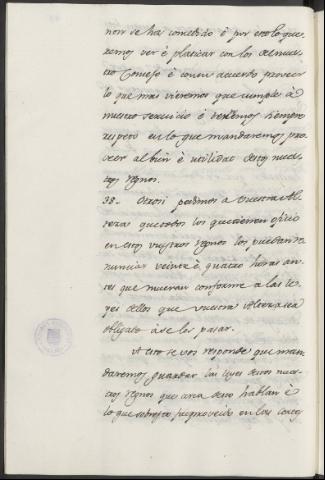 non se ha cometido é por esto lo que-
remos ver é platicar con los del nues-
tro Consejo é con su acuerdo proveer
lo que mas vieremos que cumple á
nuestro servicio é daremos siempre
respeto en lo que mandaremos pro-
veer al bien é utilidad destos nues-
tros Regnos.
38. Otrosi pedimos a Vuestra Al-
teza que todos los que tienen oficio
en estos vuestros Regnos los puedan re-
nunciar veinte é quatro horas an-
tes que mueran conforme a las le-
yes dellos que vuestra Alteza es
obligado á se les pasar.
A esto se vos responde que man-
daremos guardar las leyes destos nues-
tros Regnos que cerca desto hablan é
lo que sobresto fue proveido en las cortes